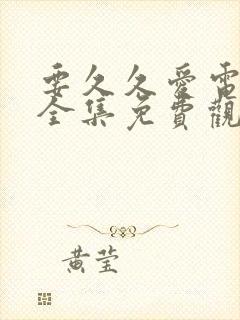 要久久愛電
全集免費觀
黄莹